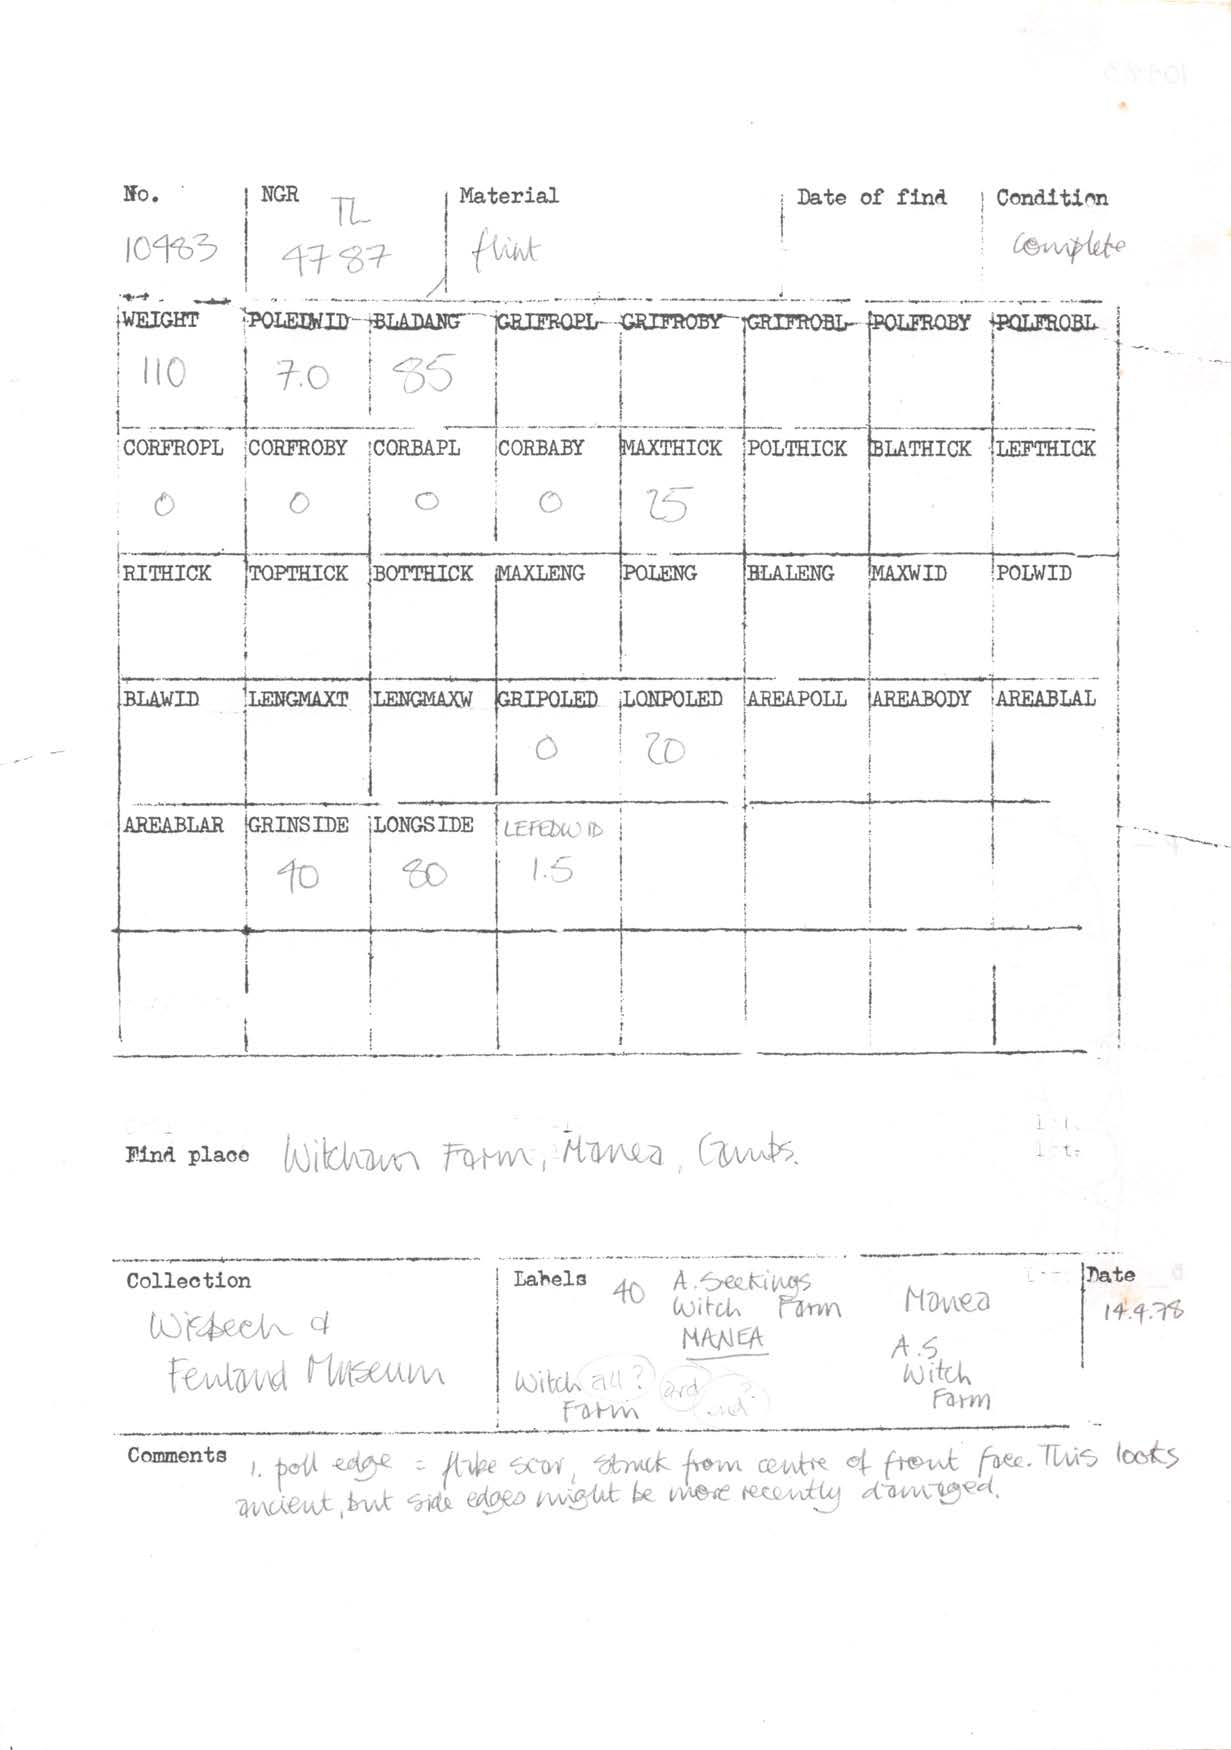 No. NGR Material Date of find Condition
TL
10483 4787 flint complete
WEIGHT POLEDWID BLADANG GRIFROPL GRIFROBY GRIFROBL POLFROBY POLFROBL
110 7.0 85
CORFROPL CORFROBY CORBAPL CORBABY MAXTHICK POLTHICK BLATHICK LEFTHICK
0 0 0 0 25
RITHICK TOPTHICK BOTTHICK MAXLENG POLENG BLALENG MAXWID POLWID
BLAWID LENGMAXT LENGMAXW GRIPOLED LONPOLED AREAPOLL AREABODY AREABLAL
0 20
AREABLAR GRINSIDE LONGSIDE LEFEDWID
40 80 1.5
Find place Witcham Farm, Manea, Cambs.
Collection
Wisbech &
Fenland Museum
Labels 40 A. Seekings
Witch Farm
MANEA
Manea
A.S
Witch
Farm
Witch all? ard
Farm
Date
14.4.78
Comments 1. poll edge = flake scar, struck from centre of front face. This looks
ancient, but side edges might be more recently damaged.